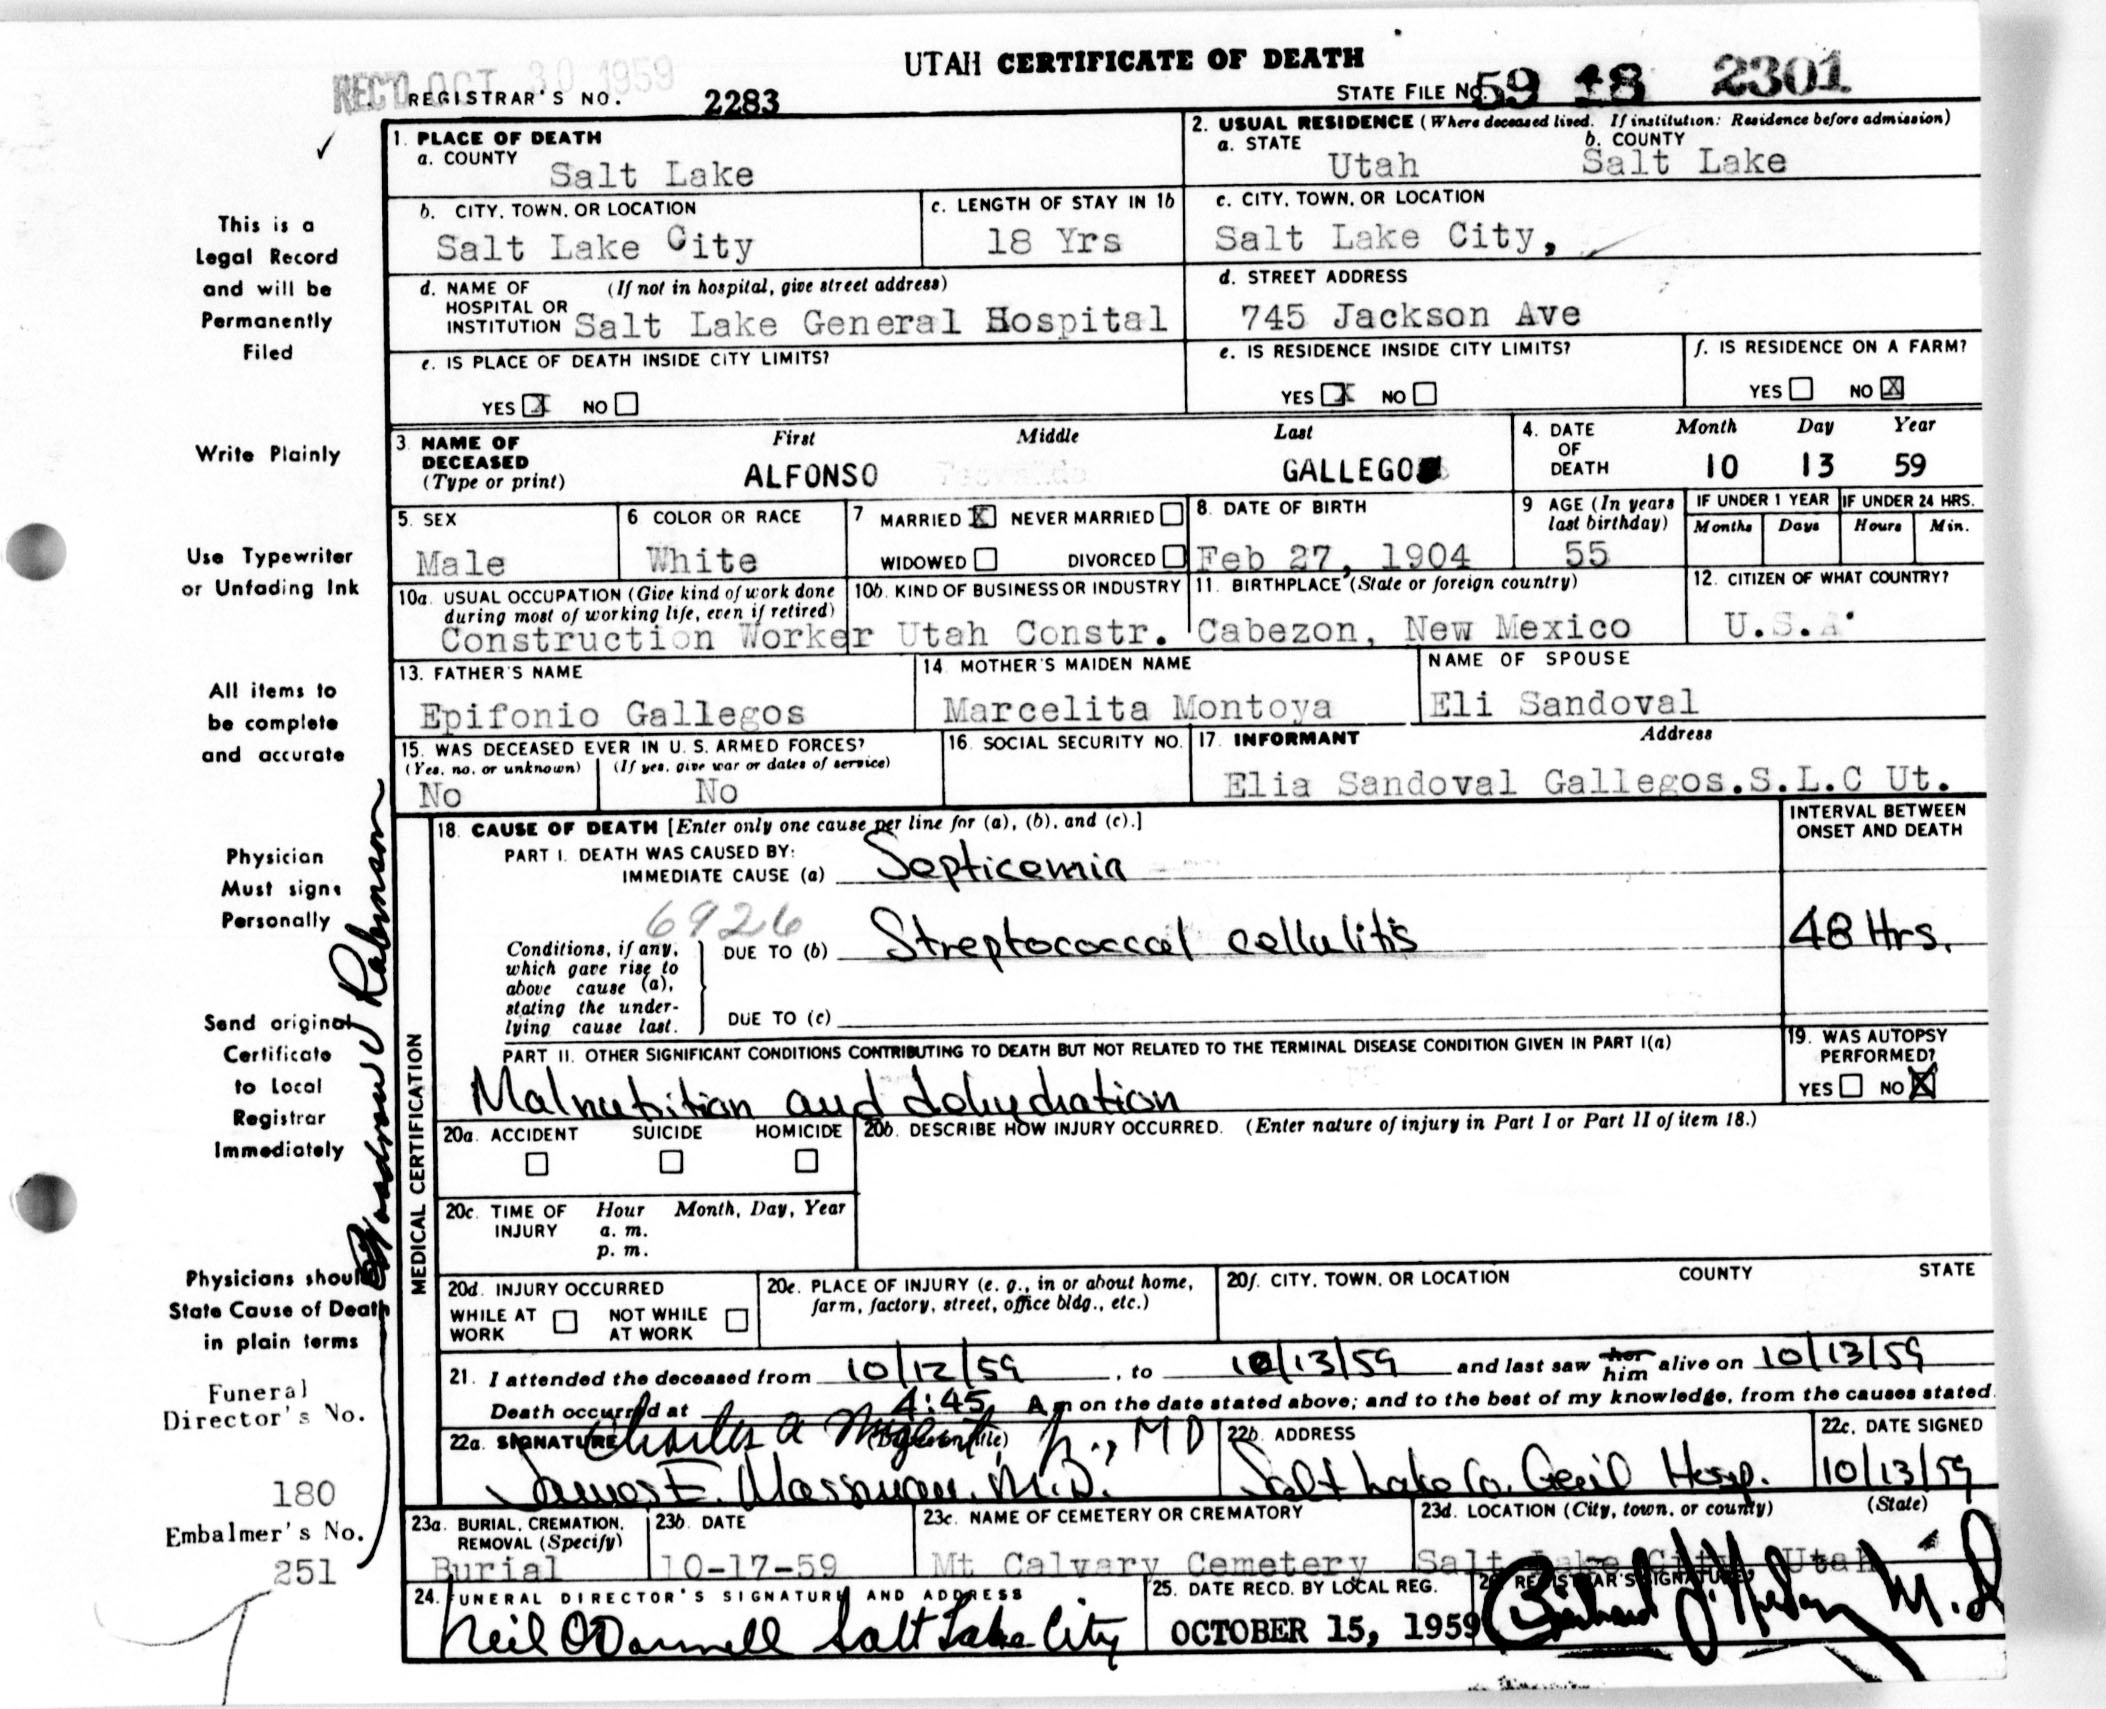 UTAH CERTIFICATE OF DEATH
REC'D OCT 30 1959
REGISTRAR'S NO. 2283
STATE FILE NO. 59 18 2301
1. PLACE OF DEATH
a. COUNTY
Salt Lake
2. USUAL RESIDENCE (Where deceased lived. If institution: Residence before admission)
a. STATE b. COUNTY
Utah Salt Lake
b. CITY, TOWN, OR LOCATION
Salt Lake City
c. LENGTH OF STAY IN 1b
18 Yrs
c. CITY, TOWN, OR LOCATION
Salt Lake City,
d. NAME OF (If not in hospital, give street address)
HOSPITAL OR
INSTITUTION Salt Lake General Hospital
d. STREET ADDRESS
745 Jackson Ave
e. IS PLACE OF DEATH INSIDE CITY LIMITS?
YES X NO
e. IS RESIDENCE INSIDE CITY LIMITS?
YES X NO
f. IS RESIDENCE ON A FARM?
YES NO X
3. NAME OF
DECEASED
(Type or print)
First Middle Last
ALFONSO GALLEGO
4. DATE
OF
DEATH
Month Day Year
10 13 59
5. SEX
Male
6 COLOR OR RACE
White
7 MARRIED X NEVER MARRIED
WIDOWED DIVORCED
8. DATE OF BIRTH
Feb 27, 1904
9 AGE (In years
last birthday)
55
IF UNDER 1 YEAR
Months Days
IF UNDER 24 HRS.
Hours Min.
10a. USUAL OCCUPATION (Give kind of work done
during most of working life, even if retired)
Construction Worker
10b. KIND OF BUSINESS OR INDUSTRY
Utah Constr.
11. BIRTHPLACE (State or foreign country)
Cabezon, New Mexico
12. CITIZEN OF WHAT COUNTRY?
U.S.A.
13. FATHER'S NAME
Epifonio Gallegos
14. MOTHER'S MAIDEN NAME
Marcelita Montoya
NAME OF SPOUSE
Eli Sandoval
15. WAS DECEASED EVER IN U. S. ARMED FORCES?
(Yes, no, or unknown) (If yes, give war or dates of service)
No No
16. SOCIAL SECURITY NO.
17. INFORMANT Address
Elia Sandoval Gallegos.S.L.C Ut.
MEDICAL CERTIFICATION
18. CAUSE OF DEATH [Enter only one cause per line for (a), (b), and (c).]
INTERVAL BETWEEN
ONSET AND DEATH
PART I. DEATH WAS CAUSED BY:
IMMEDIATE CAUSE (a) Septicemia
6926
Conditions, if any,
which gave rise to
above cause (a),
stating the under-
lying cause last.
DUE TO (b) Streptococcal cellulitis
48 Hrs.
DUE TO (c)
PART II. OTHER SIGNIFICANT CONDITIONS CONTRIBUTING TO DEATH BUT NOT RELATED TO THE TERMINAL DISEASE CONDITION GIVEN IN PART I(a)
Malnutrition and dehydration
19. WAS AUTOPSY
PERFORMED?
YES NO X
20a. ACCIDENT SUICIDE HOMICIDE
20b. DESCRIBE HOW INJURY OCCURRED. (Enter nature of injury in Part I or Part II of item 18.)
20c. TIME OF
INJURY
Hour Month, Day, Year
a. m.
p. m.
20d. INJURY OCCURRED
WHILE AT
WORK
NOT WHILE
AT WORK
20e. PLACE OF INJURY (e. g., in or about home,
farm, factory, street, office bldg., etc.)
20f. CITY, TOWN, OR LOCATION COUNTY STATE
21. I attended the deceased from 10/12/59, to 10/13/59 and last saw her him alive on 10/13/59
Death occurred at 4:45 A m on the date stated above; and to the best of my knowledge, from the causes stated.
22a. SIGNATURE (Degree or title)
Charles A
Jr., MD
James E. M.D.
22b. ADDRESS
Salt Lake Co. Gen'l Hosp.
22c. DATE SIGNED
10/13/59
23a. BURIAL, CREMATION,
REMOVAL (Specify)
Burial
23b. DATE
10-17-59
23c. NAME OF CEMETERY OR CREMATORY
Mt Calvary Cemetery
23d. LOCATION (City, town, or county) (State)
Salt Lake City, Utah
24. FUNERAL DIRECTOR'S SIGNATURE AND ADDRESS
Neil O'Donnell Salt Lake City
25. DATE RECD. BY LOCAL REG.
OCTOBER 15, 1959
26. REGISTRAR'S SIGNATURE
M.D.
This is a
Legal Record
and will be
Permanently
Filed
Write Plainly
Use Typewriter
or Unfading Ink
All items to
be complete
and accurate
Physician
Must signe
Personally
Send original
Certificate
to Local
Registrar
Immediately
Physicians should
State Cause of Death
in plain terms
Funeral
Director's No.
180
Embalmer's No.
251
Woodrow W Robinson